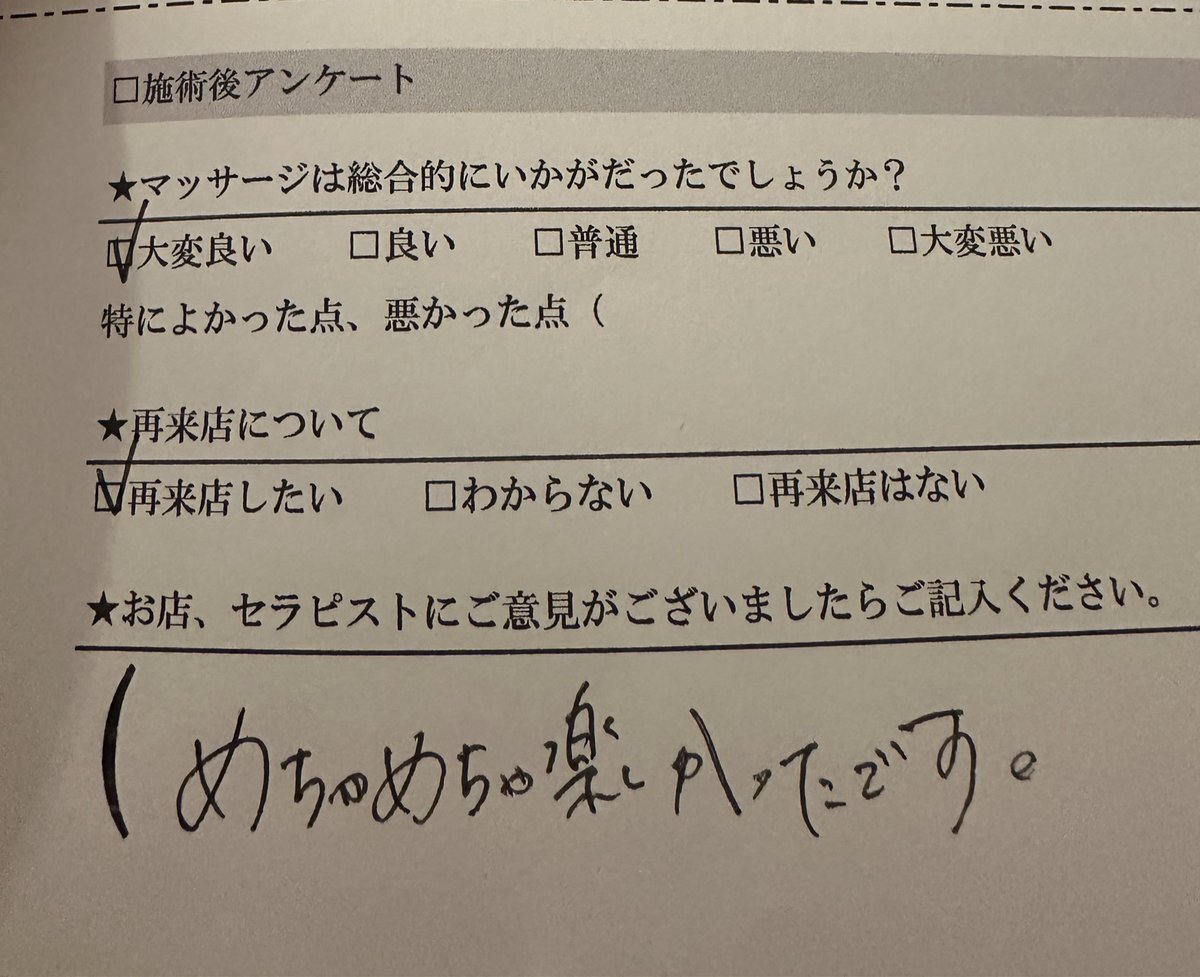 □施術後アンケート
★マッサージは総合的にいかがだったでしょうか?
☑大変良い □良い □普通 □悪い □大変悪い
特によかった点、悪かった点(
★再来店について
☑再来店したい □わからない □再来店はない
★お店、セラピストにご意見がございましたらご記入ください。
(めちゃめちゃ楽しかったです。